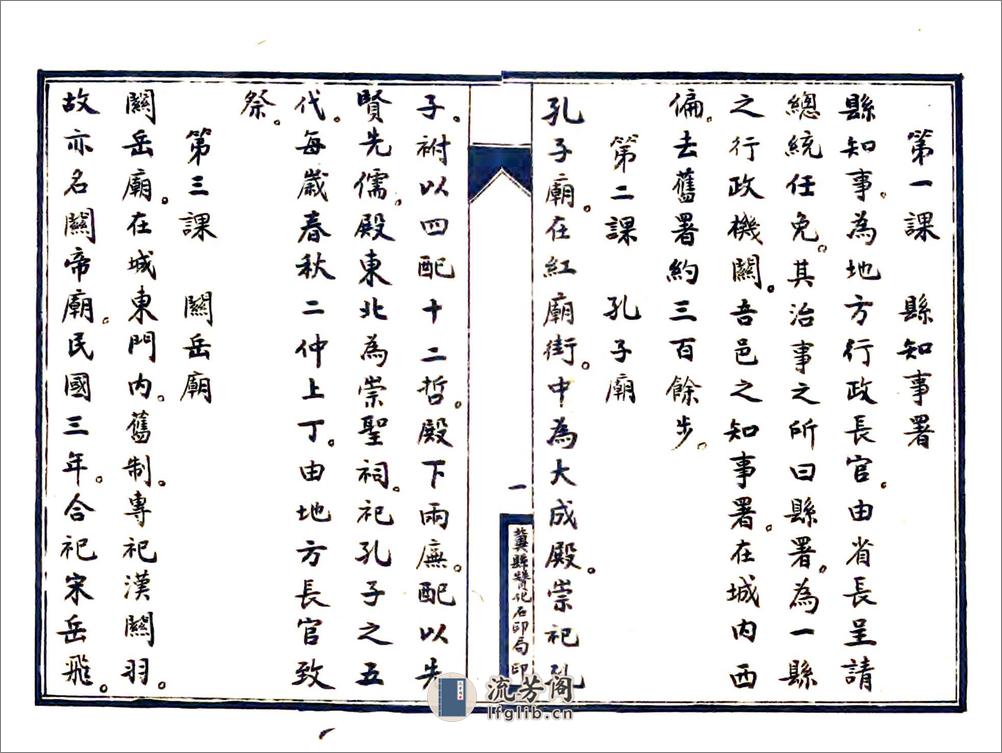 第一課　縣知事署
縣知事。為地方行政長官。由省長呈請
總統任免。其治事之所曰縣署。為一縣
之行政機關。吾邑之知事署。在城內西
偏。去舊署約三百餘步。
第二課　孔子廟
孔子廟。在紅廟街。中為大成殿。崇祀孔
子。祔以四配十二哲。殿下兩廡。配以先
賢先儒。殿東北為崇聖祠。祀孔子之五
代。每歲春秋二仲上丁。由地方長官致
祭。
第三課　關岳廟
關岳廟。在城東門內。舊制。專祀漢關羽。
故亦名關帝廟。民國三年。合祀宋岳飛。
一
冀縣贊化石印局印
流芳阁
lfglib.cn